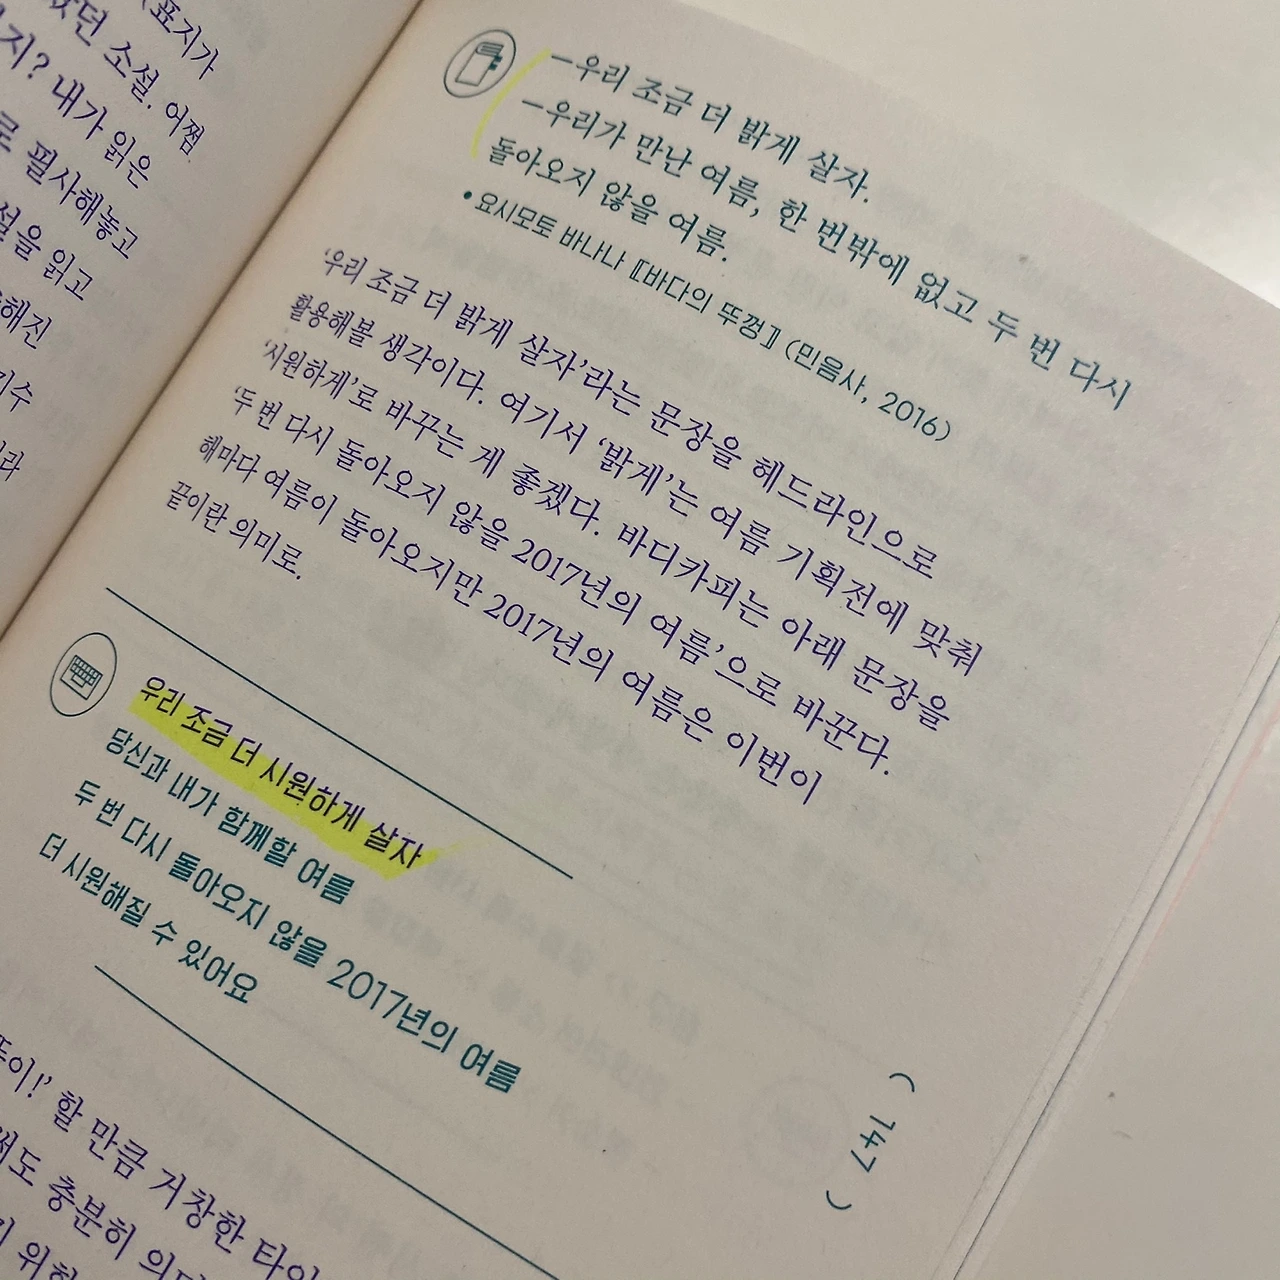 (표지가
던 소설. 어쩜
지? 내가 읽은
로 필사해놓고
설을 읽고
해진
—우리 조금 더 밝게 살자.
—우리가 만난 여름, 한 번밖에 없고 두 번 다시
돌아오지 않을 여름.
• 요시모토 바나나 『바다의 뚜껑』 (민음사, 2016)
‘우리 조금 더 밝게 살자’라는 문장을 헤드라인으로
활용해볼 생각이다. 여기서 ‘밝게’는 여름 기획전에 맞춰
‘시원하게’로 바꾸는 게 좋겠다. 바디카피는 아래 문장을
‘두 번 다시 돌아오지 않을 2017년의 여름’으로 바꾼다.
해마다 여름이 돌아오지만 2017년의 여름은 이번이
끝이란 의미로.
우리 조금 더 시원하게 살자
당신과 내가 함께할 여름
두 번 다시 돌아오지 않을 2017년의 여름
더 시원해질 수 있어요
할 만큼 거창한
충분히
( 147 )